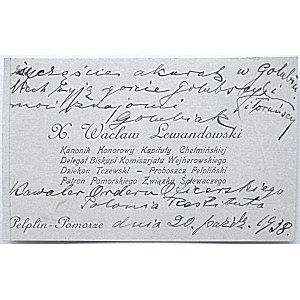 szczęście akurat w Golubiu
Niech żyją
moi znajomi
X. Wacław Lewandowski
Kanonik Honorowy Kapituły Chełmińskiej
Delegat Biskupi Komisarjatu Wejherowskiego
Dziekan Tczewski – Proboszcz Pelpliński
Patron Pomorskiego Związku Śpiewaczego
Kawaler Orderu Oficerskiego
Polonia Restituta
Pelplin-Pomorze dnia 20. paźdź. 1938.